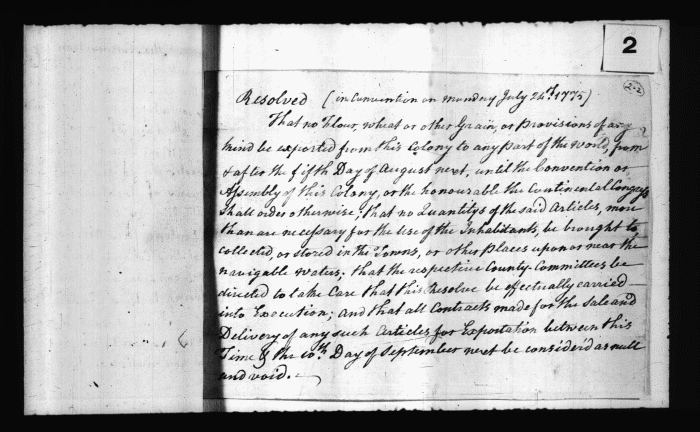 2
2-2
Resolved (in Convention on Monday July 24th. 1775)
That no Flour, wheat or other Grain, or Provisions of any
kind be exported from this Colony to any part of the world, from
& after the fifth Day of August next, until the Convention or
Assembly of this Colony, or the honourable the Continental Congress
Shall order otherwise; that no Quantitys of the said Articles, more
than are necessary for the Use of the Inhabitants, be brought to
collected, or stored in the Towns, or other Places upon or near the
navigable waters; that the respective County Committees be
directed to take Care that this Resolve be effectually carried
into Execution; and that all Contracts made for the Sale and
Delivery of any such Articles for Exportation between this
Time & the 10th. Day of September next be consider'd as null
and void.